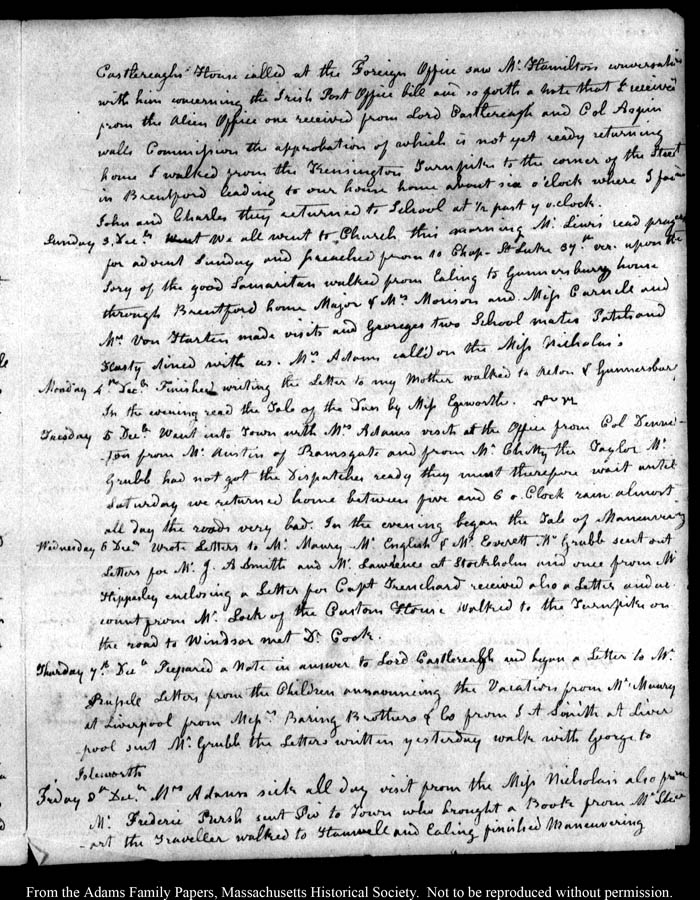 Castlereaghs House called at the Foreign Office saw Mr. Hamilton conversation
with him concerning the Irish Post Office bill and so forth a note that I received
from the Alien Office one received from Lord Castlereagh and Col Aspin
walls Commission the approbation of which is not yet ready returning
home I walked from the Kensington Turnpike to the corner of the Street
in Brentford leading to our house home about six o'clock where I found
John and Charles they returned to School at 1/2 past 7 o.clock.
Sunday 3. Decr. We all went to Church this morning Mr. Lewis read prayers
for advent Sunday and preached from 10 Chap- St Luke 37th ver. upon the
Story of the good Samaritan walked from Ealing to Gunnersbury house
through Brentford home Major & Mrs Morison and Miss Carnele and
Mr. Von Harten made visits and Georges two School mates Patch and
Hasty dined with us. Mrs Adams call'd on the Miss Nicholas's
Monday 4th Decr. Finished writing the Letter to my Mother walked to Acton & Gunnersbury
In the evening read the Tale of the Dun by Miss Egworth.
Tuesday 5 Decr. Went into Town with Mrs Adams visits at the Office from Col Denne-
ton from Mr. Austin of Ramsgate and from Mr Chitty the Taylor Mr.
Grubb had not got the Dispatches ready they must therefore wait until
Saturday we returned home between five and 6 o.Clock rain almost
all day the roads very bad. In the evening began the Tale of Maneuvering
Wednesday 6 Decr. Wrote Letters to Mr. Maury Mr. English & Mr. Everett. Mr Grubb sent out
Letters for Mr. J. A Smith and Mr. Lawrence at Stockholm and once from Mr
Hippesley enclosing a Letter for Capt Trenchard received also a Letter and ac
count from Mr. Lack of the Custom House walked to the Turnpike on
the road to Windsor met Dr. Cook.
Thursday 7th Decr. Prepared a Note in answer to Lord Castlereagh and began a Letter to Mr.
Russell Letters from the Children announcing the Vacation from Mr. Maury
at Liverpool from Messrs Baring Brothers & Co from J A Smith at Liver
pool sent Mr. Grubb the Letters written yesterday walk with George to
Isleworth
Friday 8th Decr. Mrs Adams sick all day visit from the Miss Nicholas's also from
Mr. Frederic Pursh sent Pio to Town who brought a Book from Mr
art the Traveller walked to Hanwell and Ealing finished Maneuvering
From the Adams Family Papers, Massachusetts Historical Society. Not to be reproduced without permission.